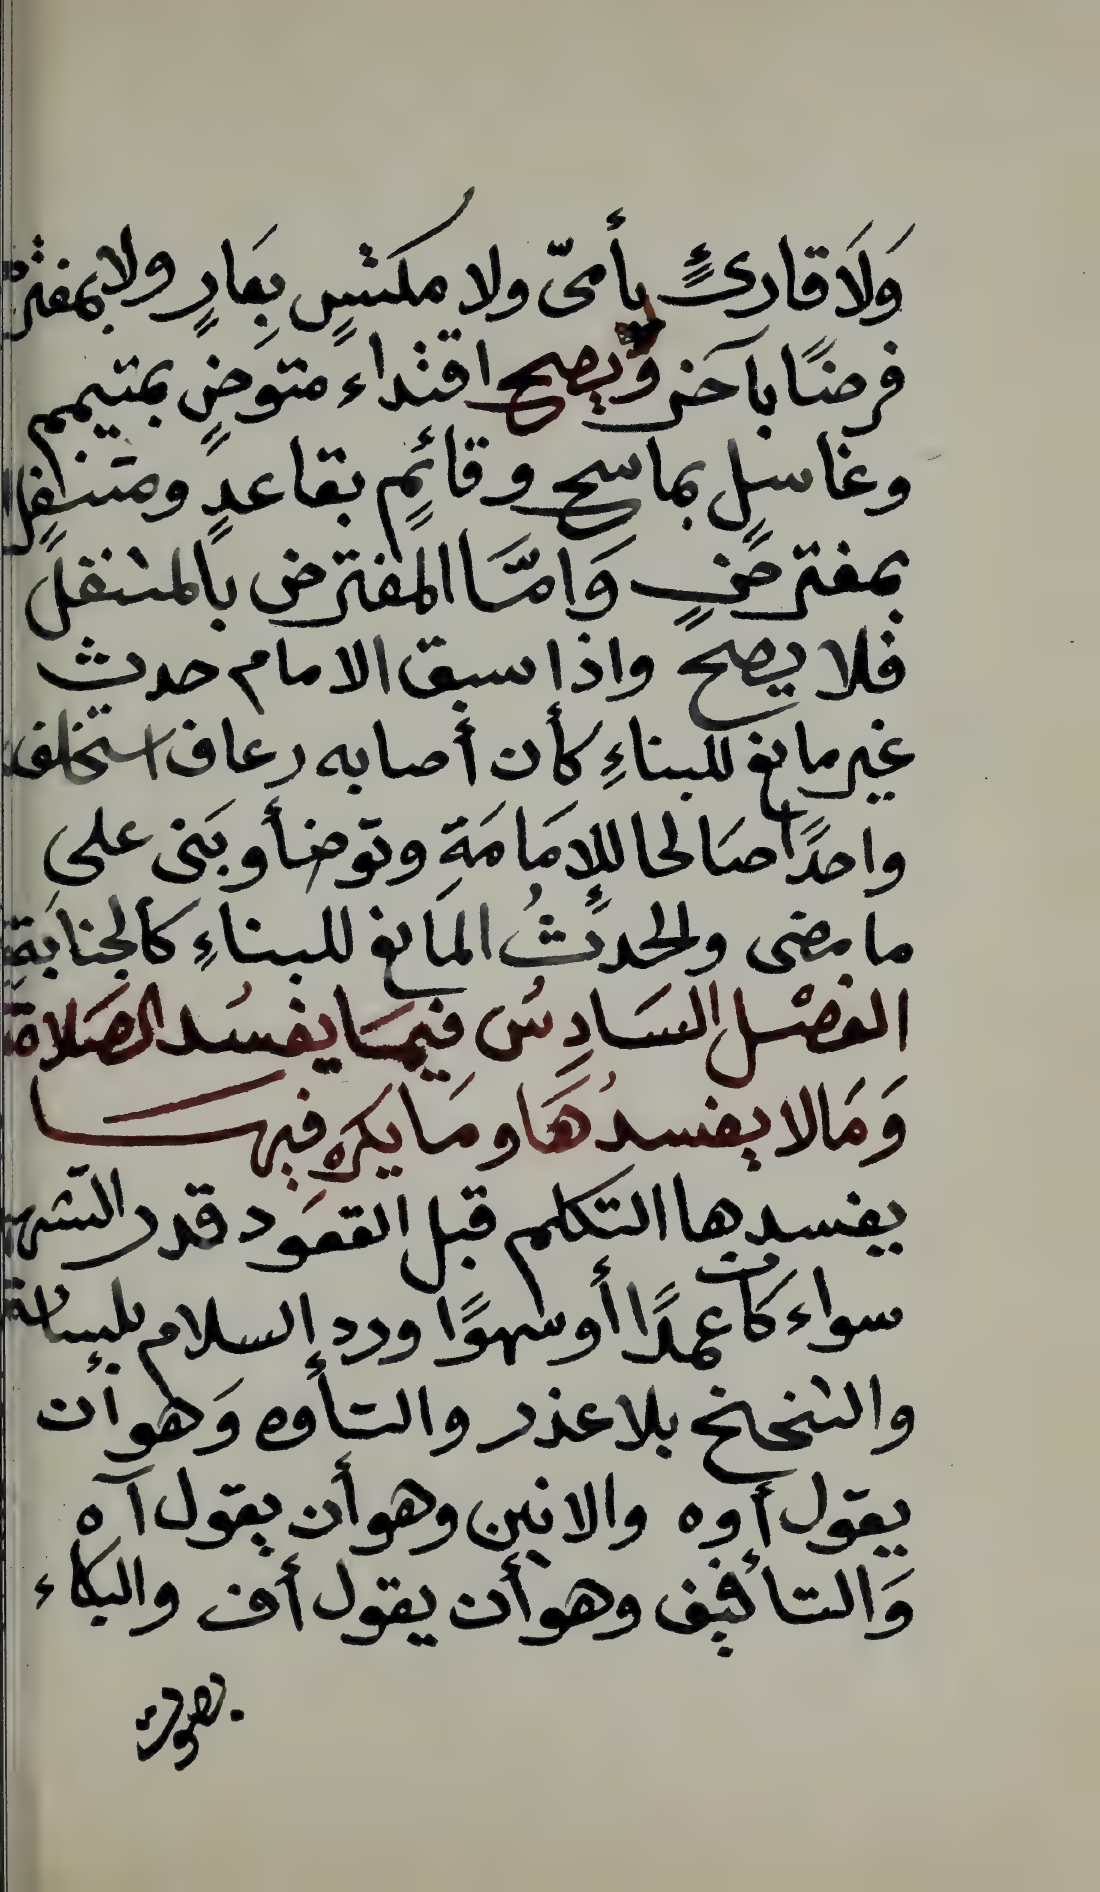 وَلَا قارئٍ بأمىّ ولا مكتسٍ بِعَارٍ ولا بمفترض
فرضًا بآخر وَيصح اقتداء متوضٍ بمتيمم
وغاسلٍ بماسح وقائمٍ بقاعدٍ ومتنفلٍ
بمفترضٍ وَامَّا المفترض بالمتنفل
فلا يصح واذا سبق الامام حدث
غير مانع للبناءِ كأن أصابه رعاف استخلف
واحدًا صَالحا للإمَامَةِ وتوضأ وبَنى على
ما مضى والحدثُ المَانع للبناءِ كالجنابَةِ
الفصْل السَادِسُ فيمَا يفسُد الصَلاة
وَمَا لا يفسدُهَا ومَا يكره فيها
يفسدها التكلم قبل القعود قدر التشهد
سواء كان عمدًا أو سهوًا ورد السلام بلسانه
والتنحنح بلا عذر والتأوه وَهو أن
يقول أوه والانين وهو أن يقول آه
وَالتأفيف وهو أن يقول أف والبكاء
بصوت